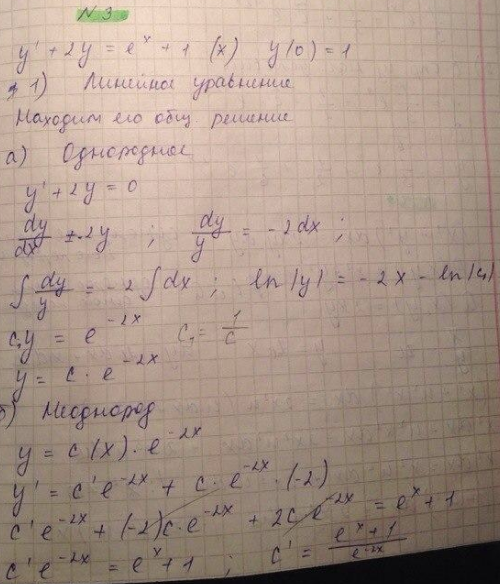 N 3
y' + 2y = e^x + 1 (x) y(0) = 1
1) Линейное уравнение
Находим его общ. решение
а) Однородное
y' + 2y = 0
dy/dx = -2y ; dy/y = -2dx ;
∫ dy/y = -2 ∫ dx ; ln|y| = -2x - ln|C₁|
C₁y = e^{-2x} C₁ = 1/C
y = C · e^{-2x}
б) Неоднород
y = C(x) · e^{-2x}
y' = C'e^{-2x} + C · e^{-2x} · (-2)
C'e^{-2x} + (-2)C·e^{-2x} + 2Ce^{-2x} = e^x + 1
C'e^{-2x} = e^x + 1 ; C' = (e^x + 1)/e^{-2x}